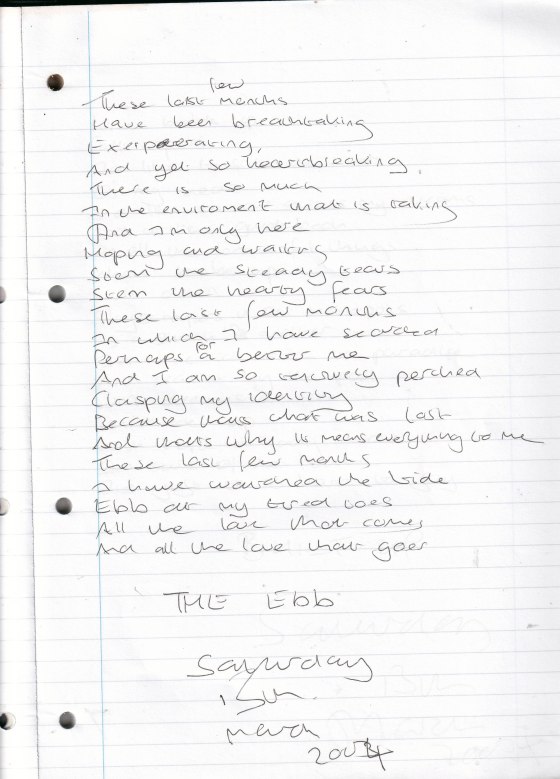 These last few months
Have been breathtaking
Exerperating,
And yet so heartbreaking,
There is so much
In the enviroment that is taking
And I'm only here
Hoping and waiting
Stem the steady tears
Stem the hearty fears
These last few months
In which I have searched
Perhaps for a better me
And I am so tentively perched
Clasping my identity
Because thats what was lost
And thats why it means everything to me
These last few months
I have watched the tide
Ebb at my tired toes
All the love that comes
And all the love that goes
THE Ebb
Saturday
15th.
March